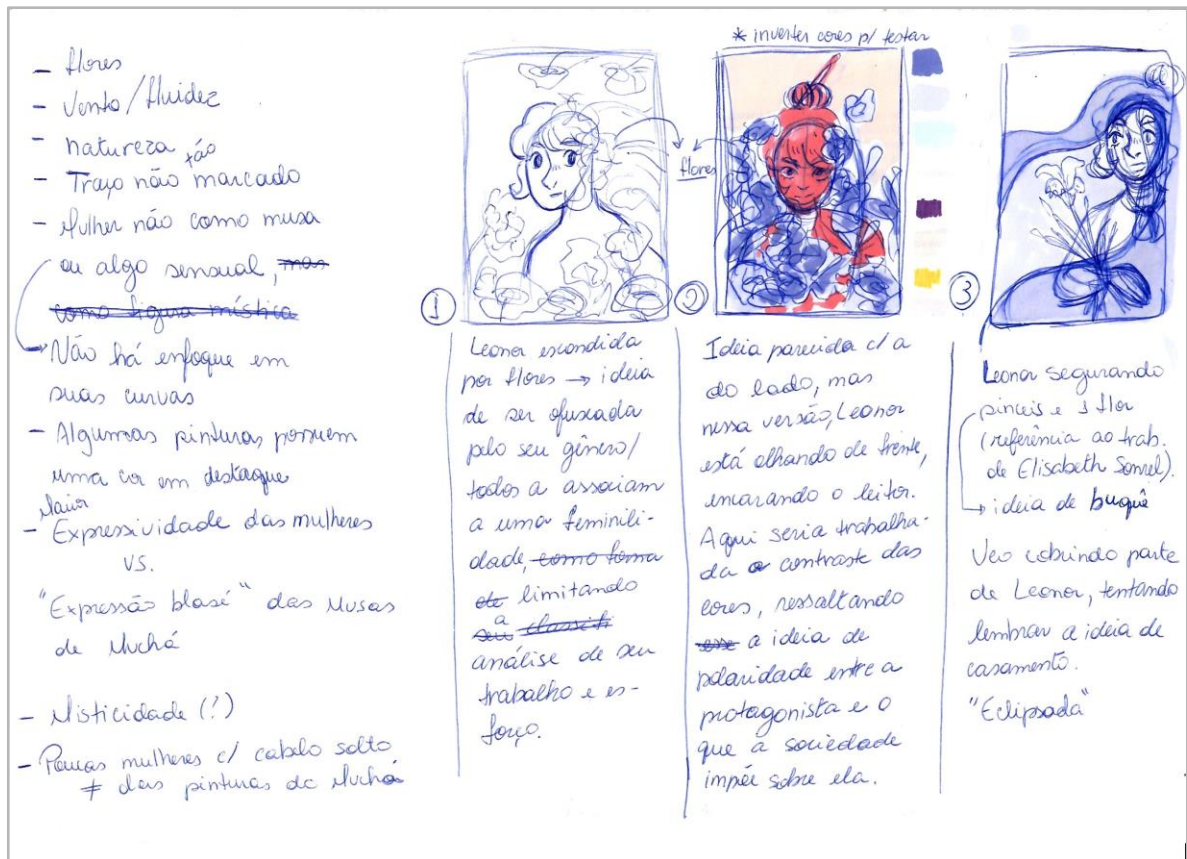 - flores
- Vento/fluidez
- natureza
- Traço não tão marcado
- Mulher não como musa
ou algo sensual, mas
como figura mística
Não há enfoque em
suas curvas
- Algumas pinturas possuem
uma cor em destaque
- Maior Expressividade das mulheres
vs.
"Expressão blasé" das Musas
de Muchá
- Misticidade (?)
- Poucas mulheres c/ cabelo solto
≠ das pinturas do Muchá
* inverter cores p/ testar
flores
1
Leonor escondida
por flores → ideia
de ser ofuscada
pelo seu gênero/
todos a associam
a uma feminili-
dade, como forma
de limitando
seu a classifi
análise de seu
trabalho e es-
forço.
2
Ideia parecida c/ a
do lado, mas
nessa versão, Leonor
está olhando de frente,
encarando o leitor.
Aqui seria trabalha-
da o contraste das
cores, ressaltando
esse a ideia de
polaridade entre a
protagonista e o
que a sociedade
impõe sobre ela.
3
Leonor segurando
pincéis e 1 flor
(referência ao trab.
de Elisabeth Sonrel).
→ ideia de buquê
Véo cobrindo parte
de Leonor, tentando
lembrar a ideia de
casamento.
"Eclipsada"